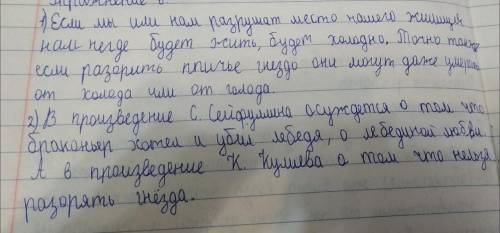 Упражнение 6
1) Если мы или нам разрушат место нашего жилища
нам негде будет жить, будет холодно. Точно также
если разорить птичье гнездо они могут даже умереть
от холода или от голода.
2) В произведение С. Сейфуллина осуждется о том что
браконьер хотел и убил лебедя, о лебединой любви.
А в произведение К. Кулиева о том что нельзя
разорять гнёзда.